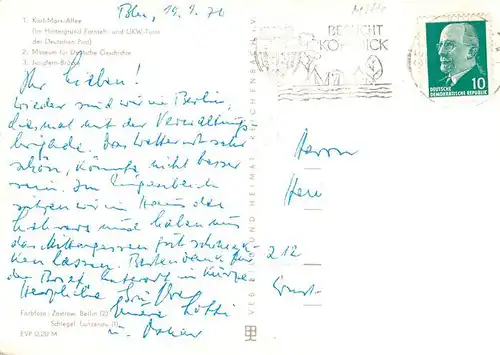 Bln, 15.9.70
1. Karl-Marx-Allee
(im Hintergrund Fernseh- und UKW-Turm
der Deutschen Post)
2. Museum für Deutsche Geschichte
3. Jungfern-Brücke
Ihr Lieben!
wieder sind wir in Berlin,
diesmal mit der Verwaltungs
brigade. Das Wetter ist sehr
schön, könnte nicht besser
sein. Im Augenblick
sitzen wir im Haus des
Lehrers und haben uns
das Mittagessen gut schmek-
ken lassen. Besten Dank für
den Brief. Antwort in Kürze
Herzliche Grüße
Eure Lotti
u. Oskar
Farbfotos: Zastrow, Berlin (2)
Schlegel, Lunzenau (1)
EVP 0,20 M
VEB BILD UND HEIMAT REICHENBACH I. V.
BESUCHT
KÖPENICK
10
DEUTSCHE
DEMOKRATISCHE REPUBLIK
Herrn
212